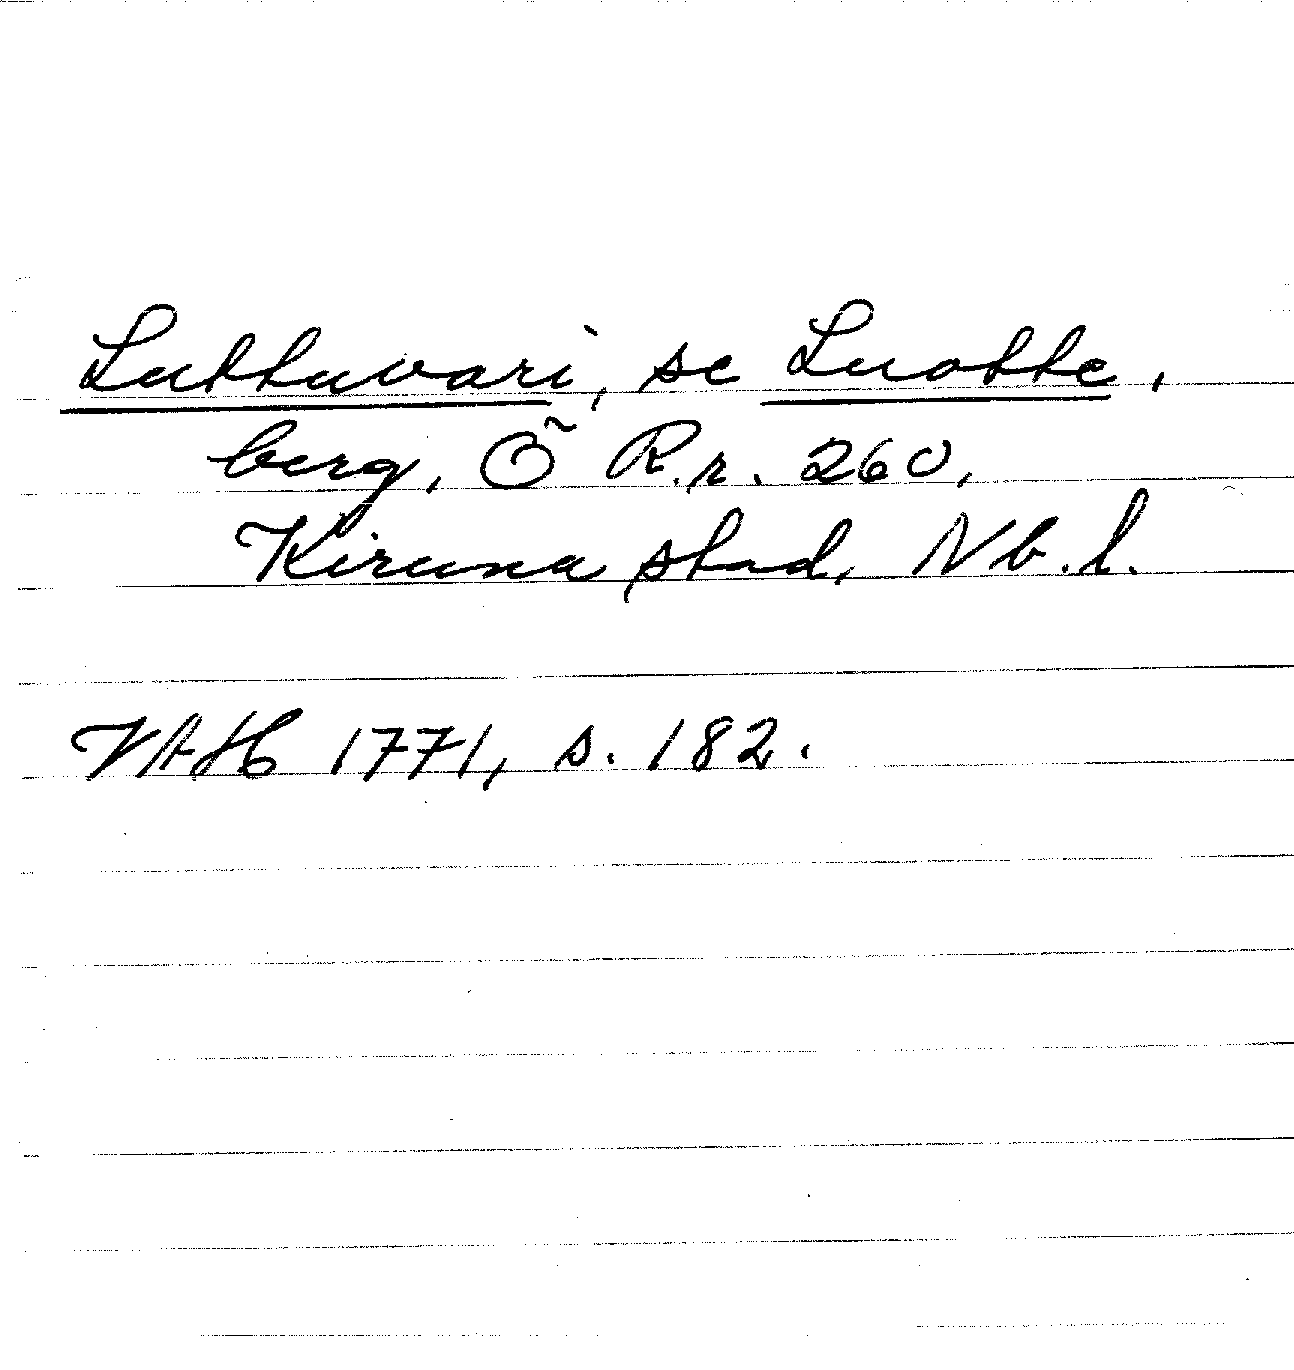 Luttuvari, se Luotte,
berg, Ö R.r. 260,
Kiruna stad, Nb.l.
VAH 1771, s. 182.